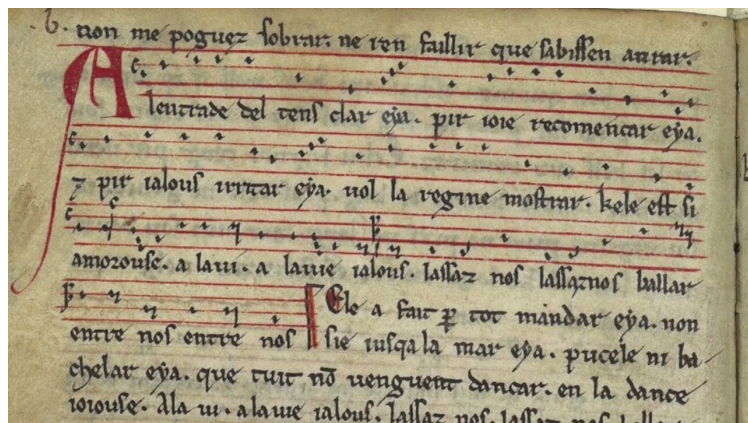 non me poguez sobrar. ne ren faillir que sabissen aurar.
A lentrade del tens clar eya. pir ioie recomencar eya.
⁊ pir ialous irritar eya. uol la regine mostrar. kele est si
amorouse. a laui. a lauie ialous. lassaz nos lassaz nos ballar
entre nos entre nos
Ele a fait ꝑ tot mandar eya. non
sie iusqa la mar eya. pucele ni ba-
chelar eya. que tuit nō uenguent dancar. en la dance
ioiouse. Ala ui. alauie ialous. lassaz nos. lassaz nos